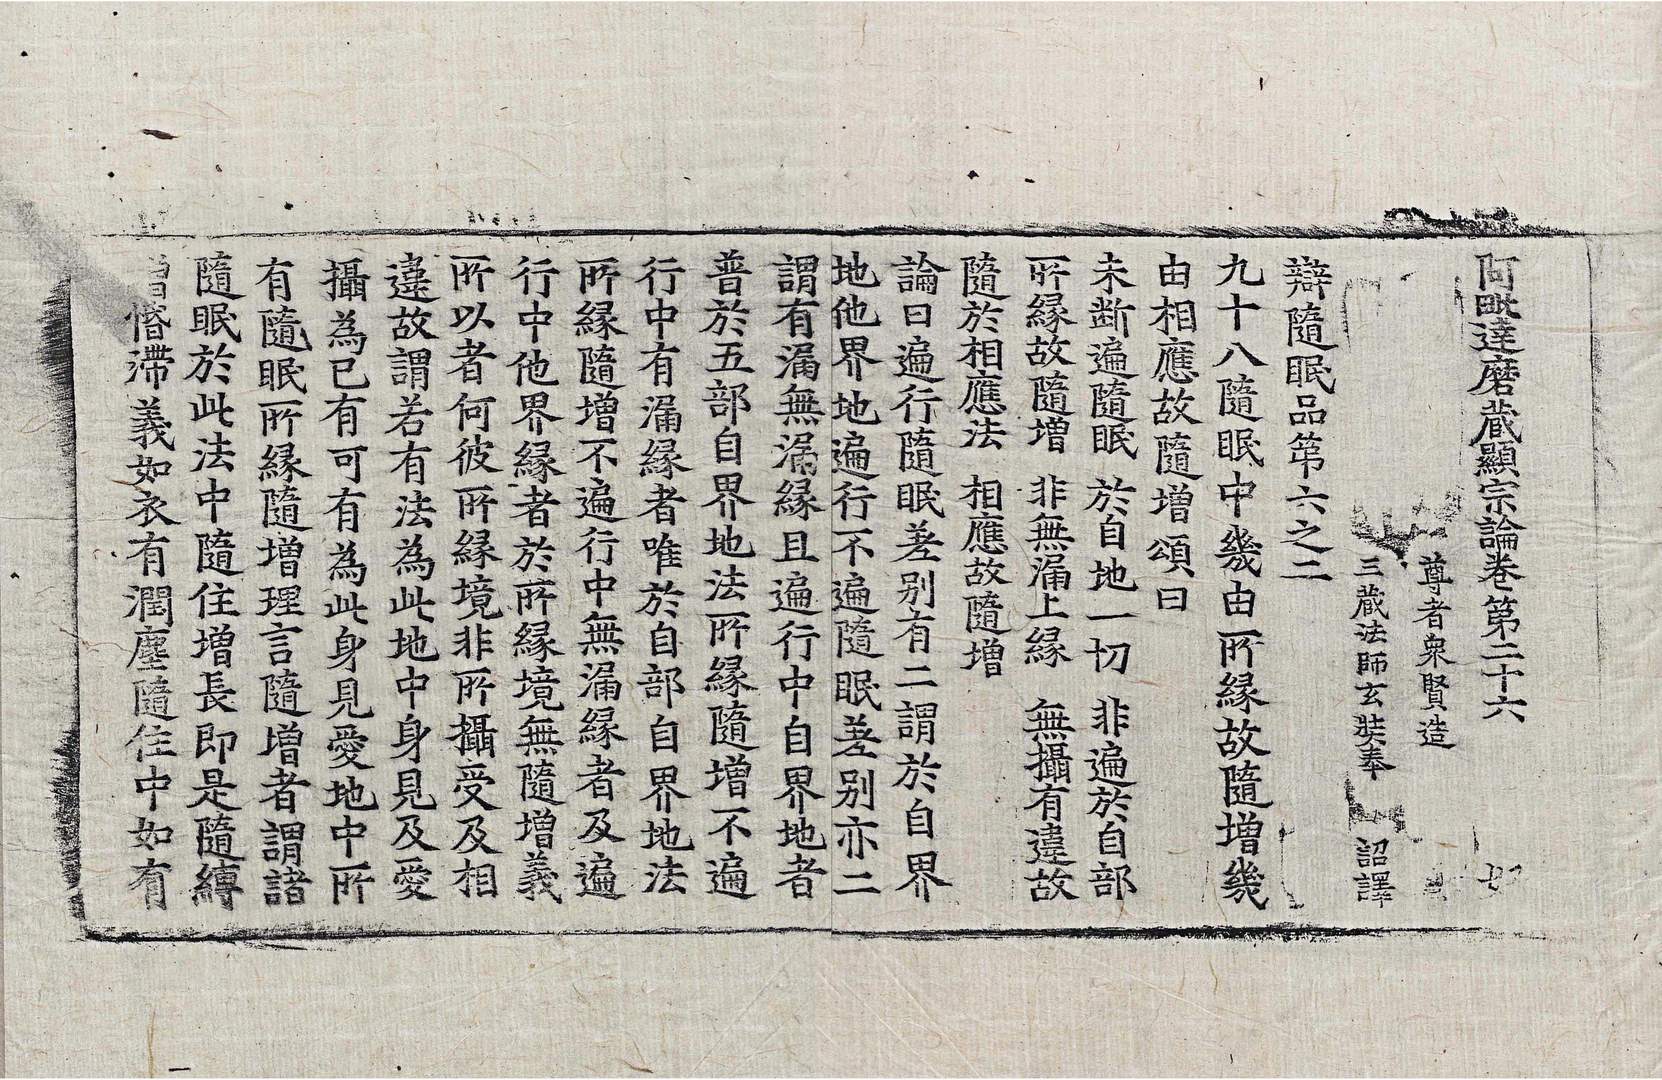 阿毗達磨藏顯宗論卷第二十六
尊者衆賢造
三藏法師玄奘奉 詔譯
辯隨眠品第六之二
九十八隨眠中幾由所緣故隨增幾
由相應故隨增頌曰
未斷遍隨眠 於自地一切 非遍於自部
所緣故隨增 非無漏上緣 無攝有違故
隨於相應法 相應故隨增
論曰遍行隨眠差別有二謂於自界
地他界地遍行不遍隨眠差別亦二
謂有漏無漏緣且遍行中自界地者
普於五部自界地法所緣隨增不遍
行中有漏緣者唯於自部自界地法
所緣隨增不遍行中無漏緣者及遍
行中他界緣者於所緣境無隨增義
所以者何彼所緣境非所攝受及相
違故謂若有法為此地中身見及愛
攝為已有可有為此身見愛地中所
有隨眠所緣隨增理言隨增者謂諸
隨眠於此法中隨住增長即是隨縛
增惛滯義如衣有潤塵隨住中如有